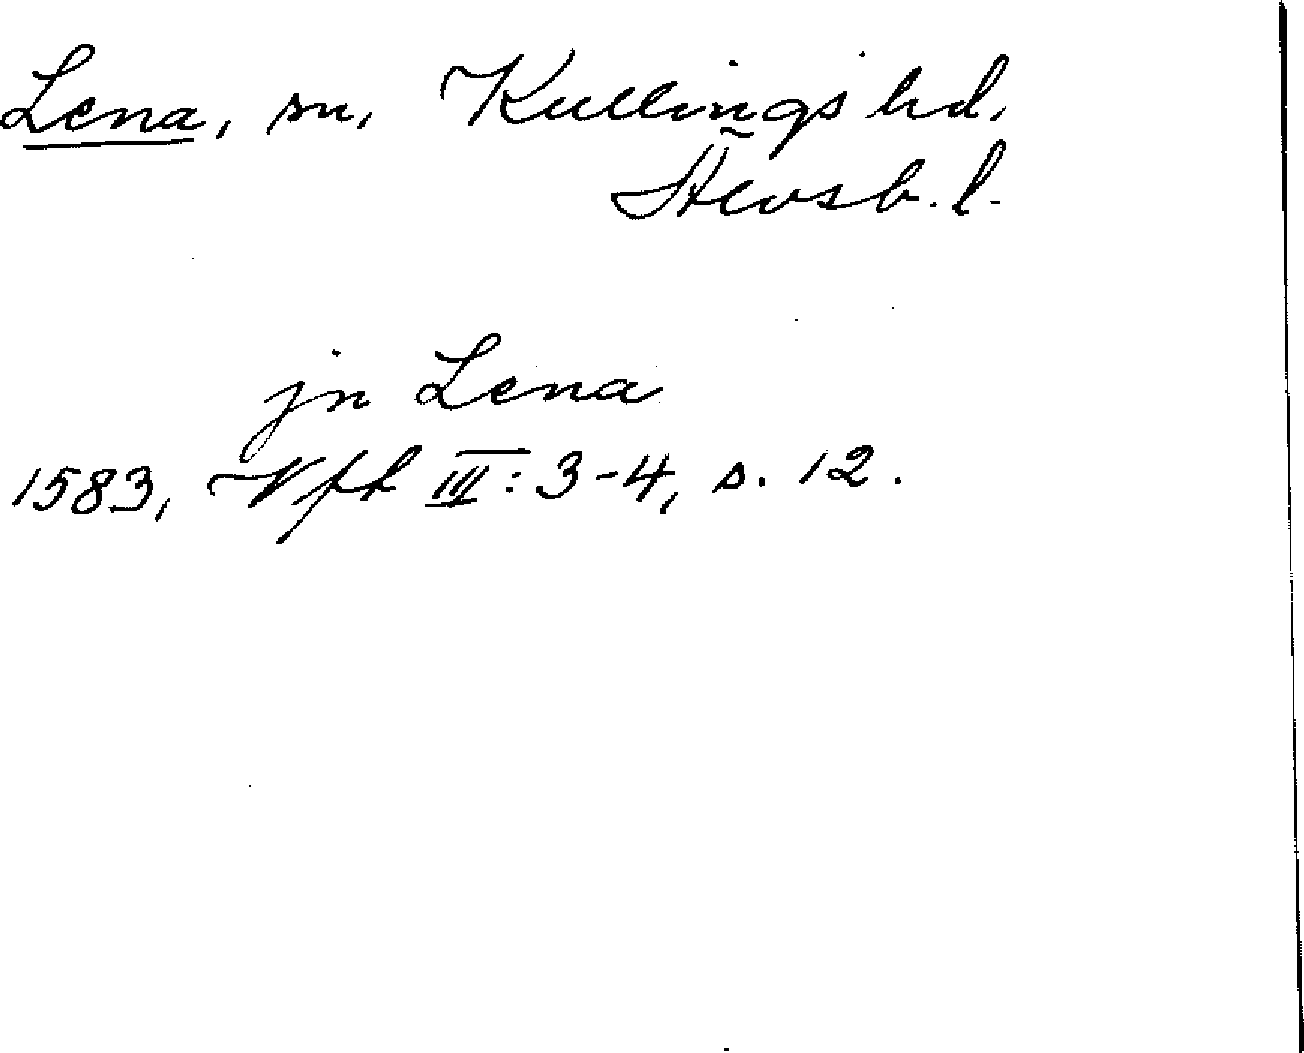 Lena, sn, Kullings hd.
Älvsb. l.
jn Lena
1583, Vfh III: 3-4, s. 12.